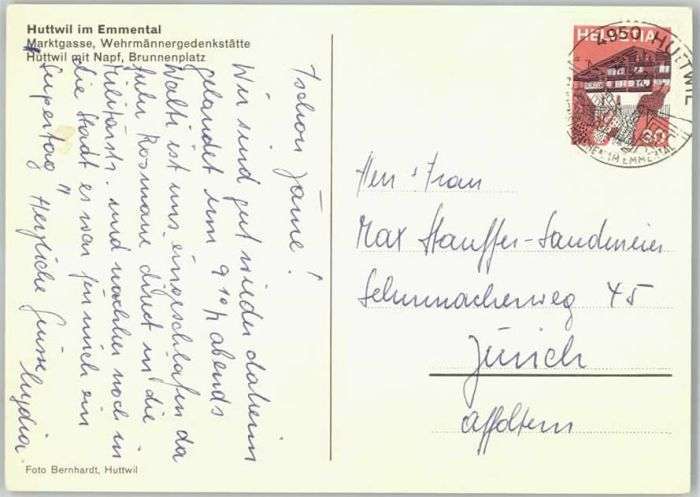 Huttwil im Emmental
Marktgasse, Wehrmännergedenkstätte
Huttwil mit Napf, Brunnenplatz
HELVETIA
30
4950 HUTTWIL
IM EMMENTAL
Tschon Jänne!
Wir sind gut wieder daheim
gelandet um 9 10 h abends
Walti ist uns eingeschlafen da
fuhr Rosmarie direkt in die
Militärstr. und nachher noch in
die Stadt es war für mich ein
"Supertag" Herzliche Grüsse
Lydia
Herr u Frau
Max Stauffer-Sandmeier
Schumacherweg 45
Zürich
Affoltern
Foto Bernhardt, Huttwil